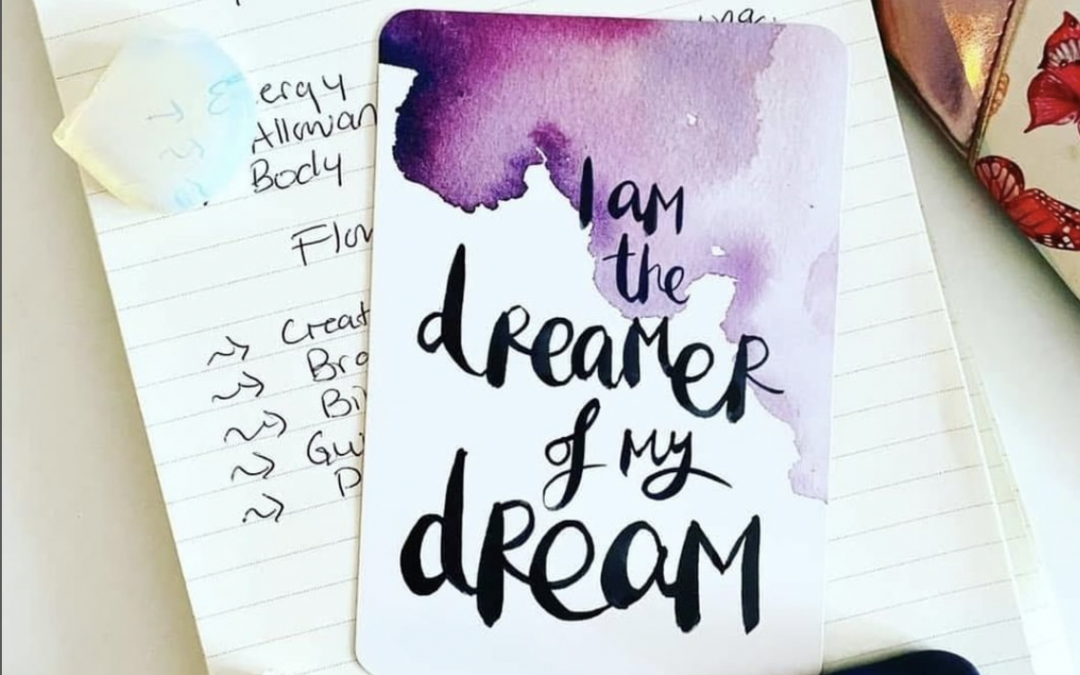 Energy
Allowan
Body
Flow
Creat
I am
the
dreamer
of my
dream